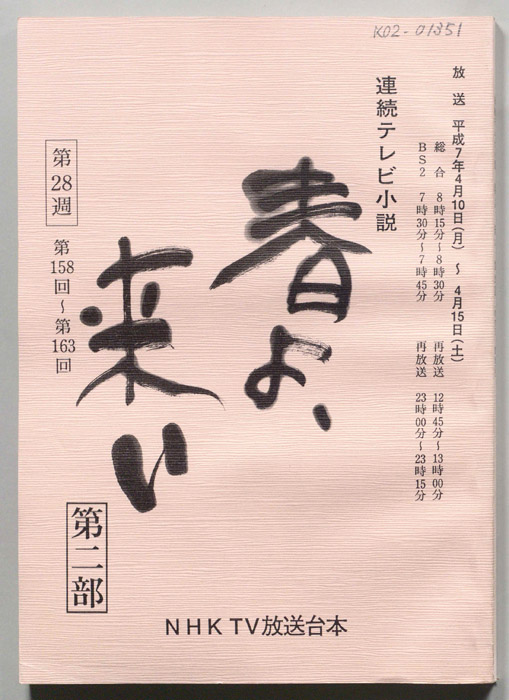 K02-01351
放送 平成7年4月10日(月) ～ 4月15日(土)
総合 8時15分～8時30分 再放送 12時45分～13時00分
BS2 7時30分～7時45分 再放送 23時00分～23時15分
連続テレビ小説
春よ、
来い
第28週
第158回～第163回
第二部
NHK TV放送台本